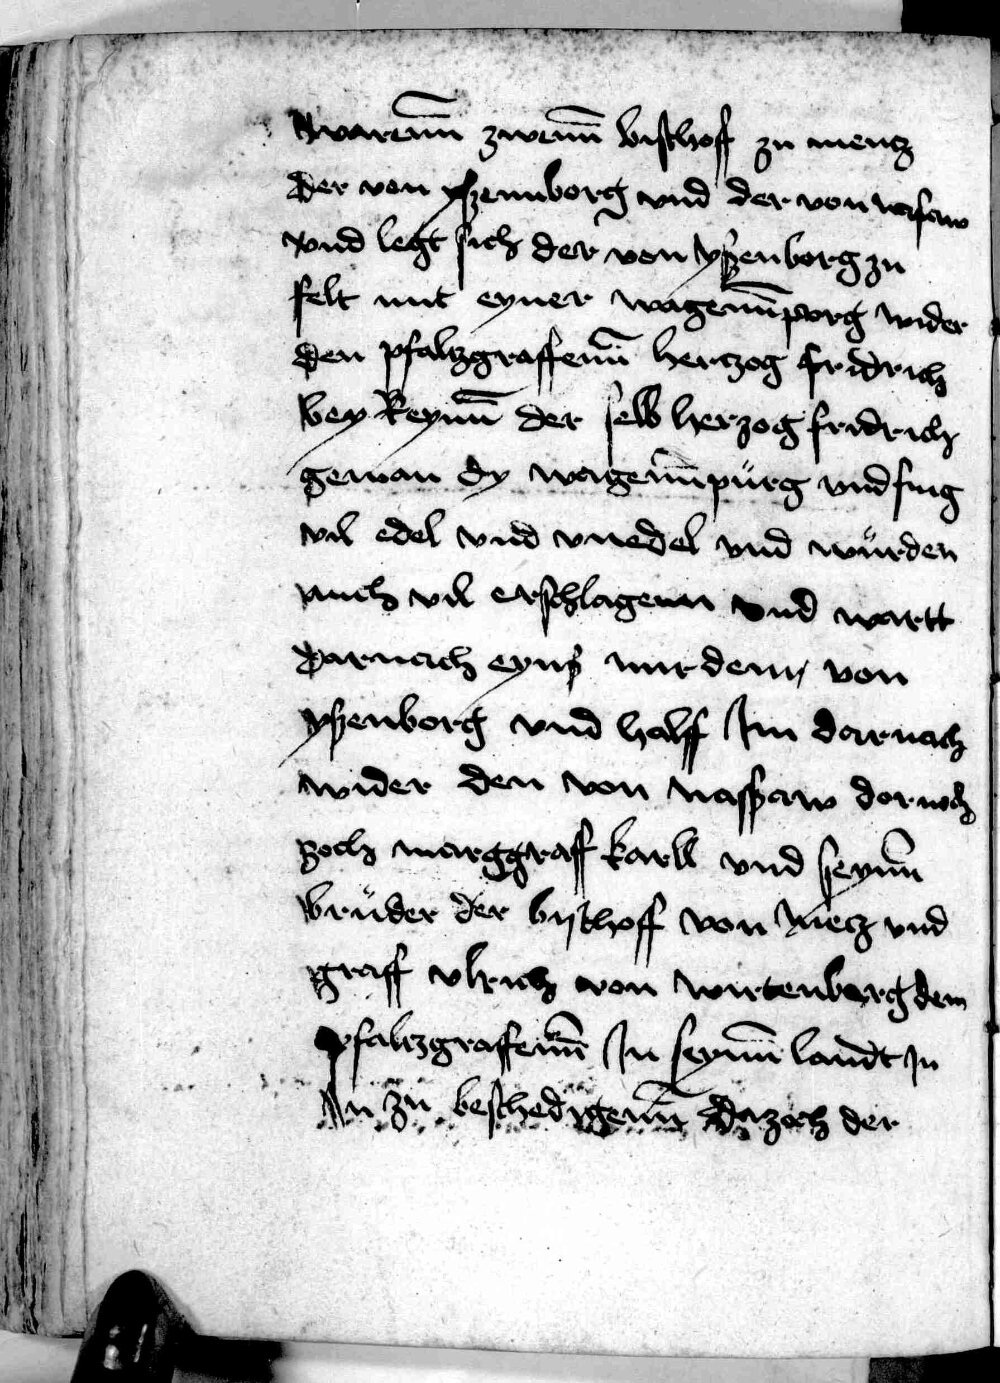 warenn zwenn bischoff zu mentz
der von yszennborg vnd der von nasaw
vnd legt sich der von yszenborg zu
felt mit eyner wagennporg wider
den pfaltzgraffenn hertzog fridrich
bey Reynn der selb herzog fridrich
gewan dy wagennpürg vnd fing
vil edel vnd vnedel vnd würden
auch vil erschlagenn vnd wartt
darnach eynsz mit dem von
yszenborg vnd halff Im darnach
wider den von naszaw dornoch
zoch marggraff karll vnd seynn
brüder der bischoff von Metz vnd
graff vlrich von wirtenberg dem
pfaltzgraffenn In seynn landt In
An zu beschedigenn Da zoch der